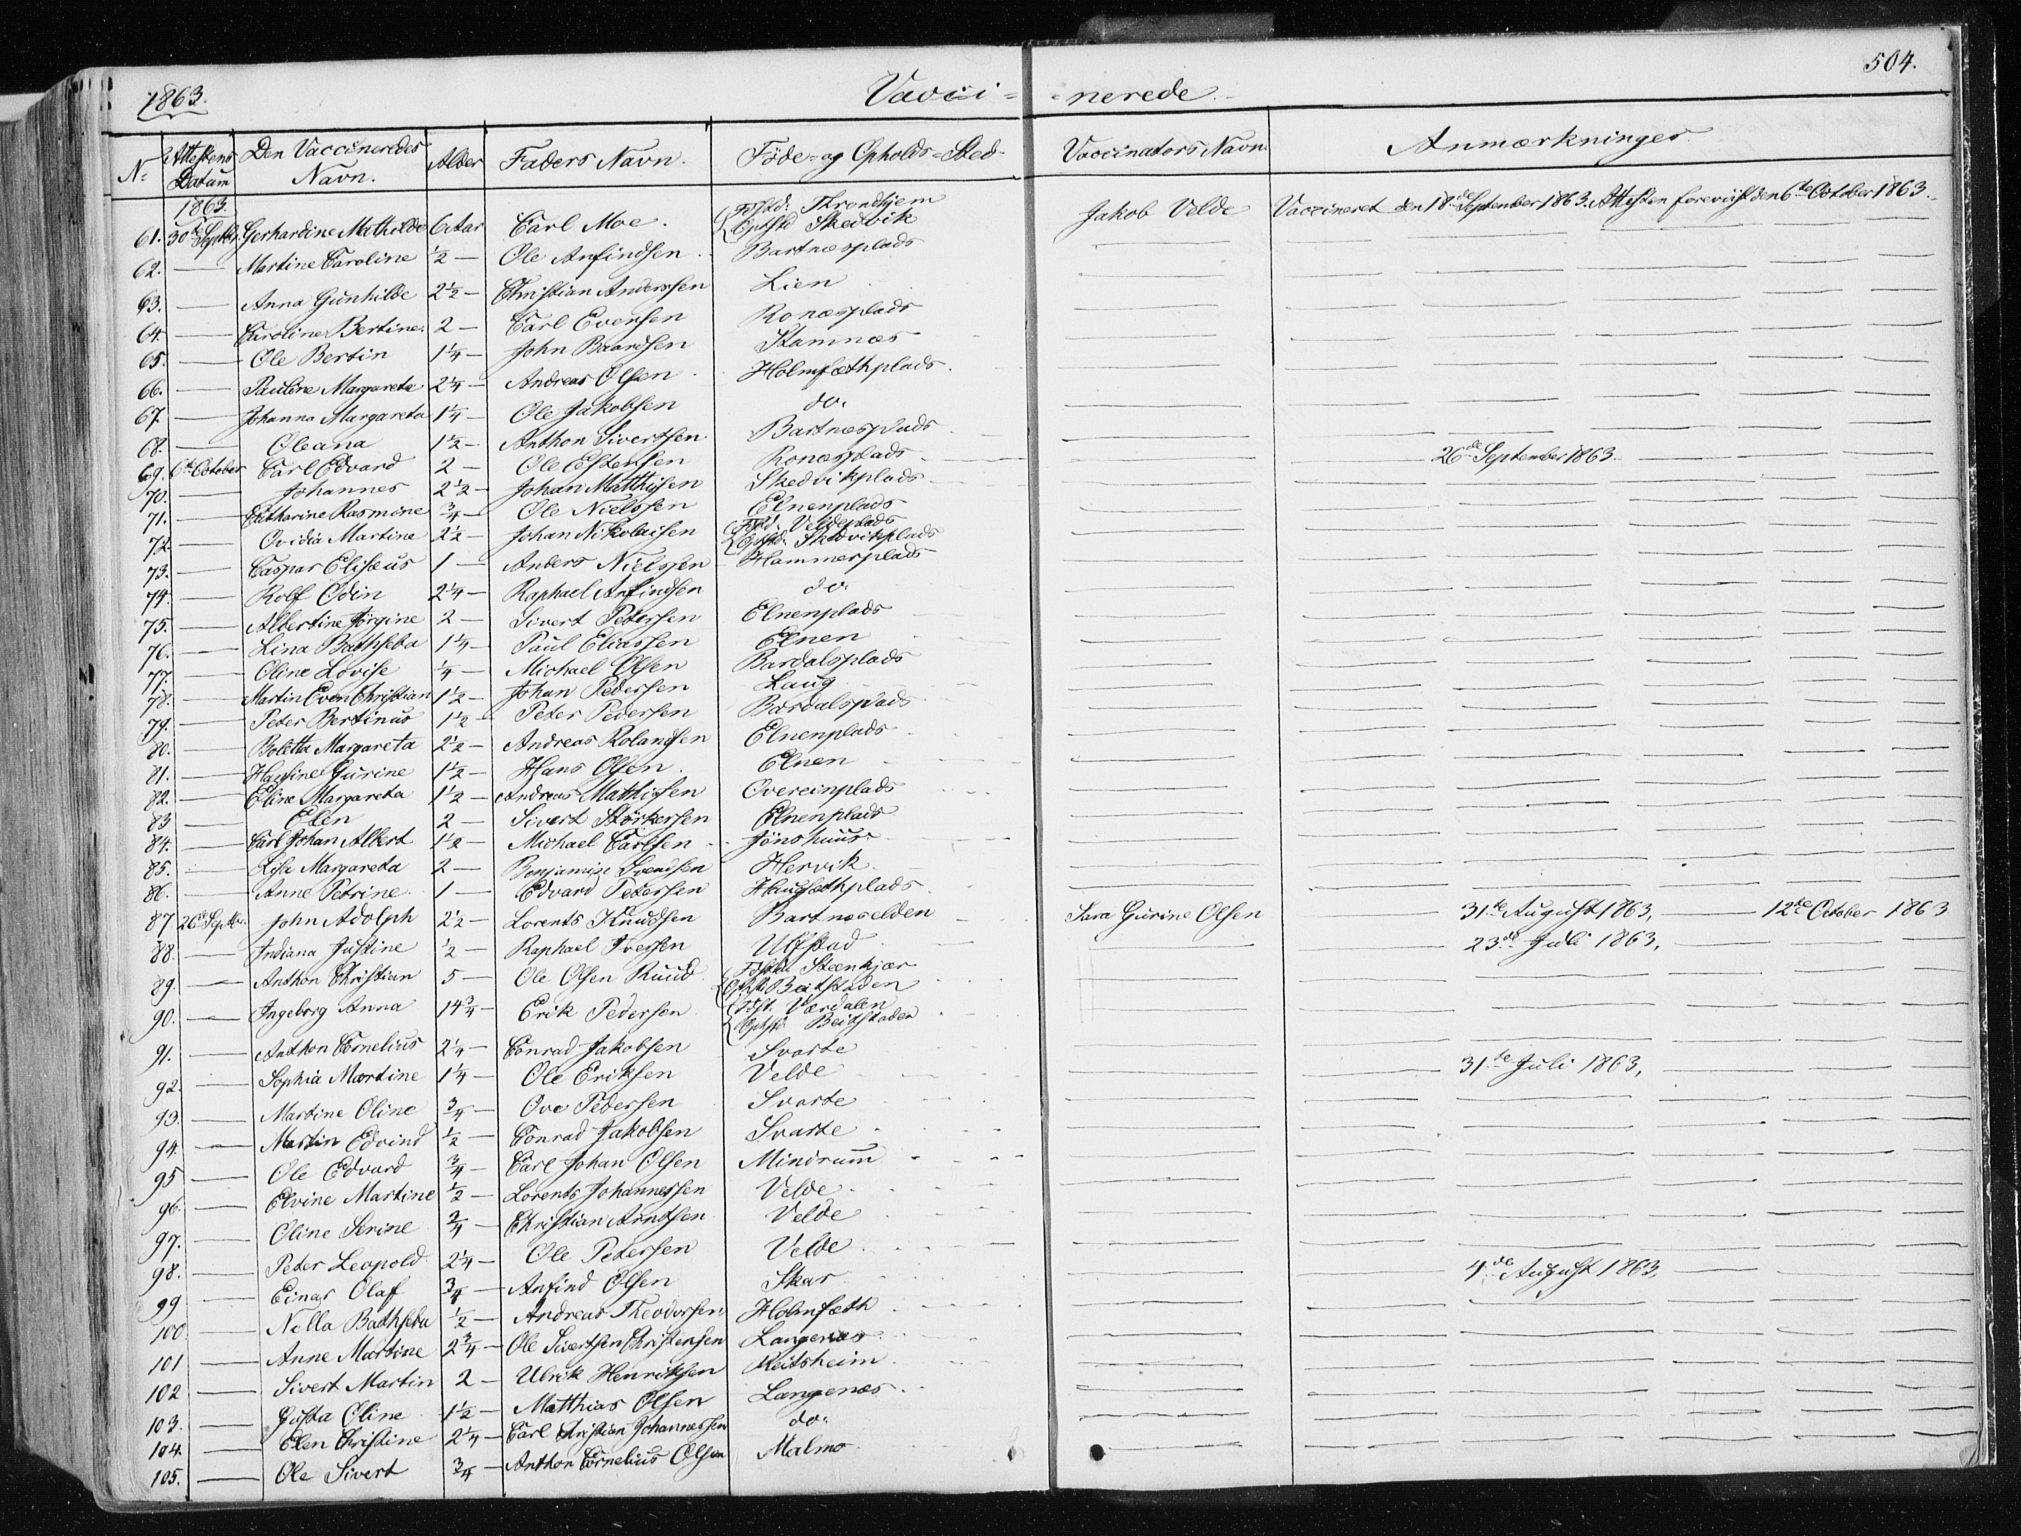 1863. Vacci= =nerede. 504.
No Attestens Datum Den Vaccineredes Navn. Alder Faders Navn. Føde- og Opholds-Sted. Vaccinators Navn. Anmærkninger.
1863
61. 30te Septbr. Gerhardine Mathilde 6 Aar Carl Moe. Fstd: Throndhjem Opstd Skedvik Jakob Velde Vaccineret den 18de September 1863. Attesten foreviist den 6te October 1863.
62. — Martine Caroline ½ — Ole Anfindsen Bartnæsplads
63. — Anna Gunhilde 2½ — Christian Anderssen Lien
64. — Caroline Bertine 2 — Carl Evensen Ronæsplads
65. — Ole Bertin 1¼ — John Baardsen Stamnæs
66. — Pauline Margareta 2¼ — Andreas Olsen Holmsethplads
67. — Johanna Margareta 1¼ — Ole Jakobsen do.
68. — Oleana 1½ — Anthon Sivertsen Bartnæsplads
69. 6te October Carl Edvard 2 — Ole Estensen Ronæsplads — 26de September 1863.
70. — Johannes 2½ — Johan Matthisen Skedvikplads
71. — Catharine Rasmine ¾ — Ole Nielssen Elnenplads
72. — Ovidia Martine 2½ — Johan Nikolaisen Fstd: Veldeplads Opstd: Skedvikplads
73. — Caspar Eliseus 1 — Anders Nielssen Hammerplads
74. — Rolf Odin 2¼ — Raphael Anfindsen do.
75. — Albertine Jörgine 2 — Sivert Petersen Elnenplads
76. — Lina Bathseba 1¼ — Paul Eliassen Elnen
77. — Oline Lovise ¼ — Michael Olsen Bardalsplads
78. — Martin Even Christian 1½ — Johan Pedersen Laug
79. — Peter Bertinus 1½ — Peter Pedersen Bardalsplads
80. — Boletta Margareta 2½ — Andreas Rolandsen Elnenplads
81. — Hansine Gurine 1½ — Hans Olsen Elnen
82. — Eline Margareta 1½ — Andreas Mathisen Overeinplads
83 — Elen 2 — Sivert Störkersen Elnenplads
84. — Carl Johan Albert 1½ — Michael Carlsen Jönshuus
85. — Lisa Margareta 2 — Benjamin Svendsen Hervik
86. — Anne Petrine 1 — Edvard Petersen Haugsethplads
87 26de Septbr. John Adolph 2½ — Lorents Knudsen Bartnæselden Sara Gurine Olsen — 31te August 1863, — 12te October 1863
88. — Indiana Justine ½ — Raphael Iversen Ulfstad — 23de Juli 1863,
89. — Anthon Christian 5 — Ole Olsen Ruud Fstd: Steenkjær Opst. Beitstaden
90. — Ingeborg Anna 14¾ — Erik Pedersen Fst. Værdalen Opstd Beitstaden
91. — Anthon Cornelius 2¼ — Conrad Jakobsen Svarte
92. — Sophia Martine 1¼ — Ole Eriksen Velde — 31te Juli 1863,
93. — Martine Oline ¾ — Ove Pedersen Svarte
94. — Martin Edvind ½ — Conrad Jakobsen Svarte
95 — Ole Edvard ¾ — Carl Johan Olsen Mindrum
96. — Elvine Martine ½ — Lorents Johannessen Velde
97. — Oline Serine ¾ — Christian Arntsen Velde
98. — Peter Leopold 2¼ — Ole Petersen Velde
99 — Einar Olaf ¾ — Anfind Olsen Skar — 4de August 1863,
100. — Nella Bathseba ½ — Andreas Theodorsen Holmseth
101 — Anne Martine 2¾ — Ole Sivertsen Christensen Langenæs
102 — Sivert Martin 2 — Ulrik Henriksen Reitsheim
103. — Gusta Oline 1½ — Matthias Olsen Langenæs
104. — Elen Christine 2¼ — Carl Christian Johannessen do.
105. — Ole Sivert ¾ — Anthon Cornelius Olsen Malmo